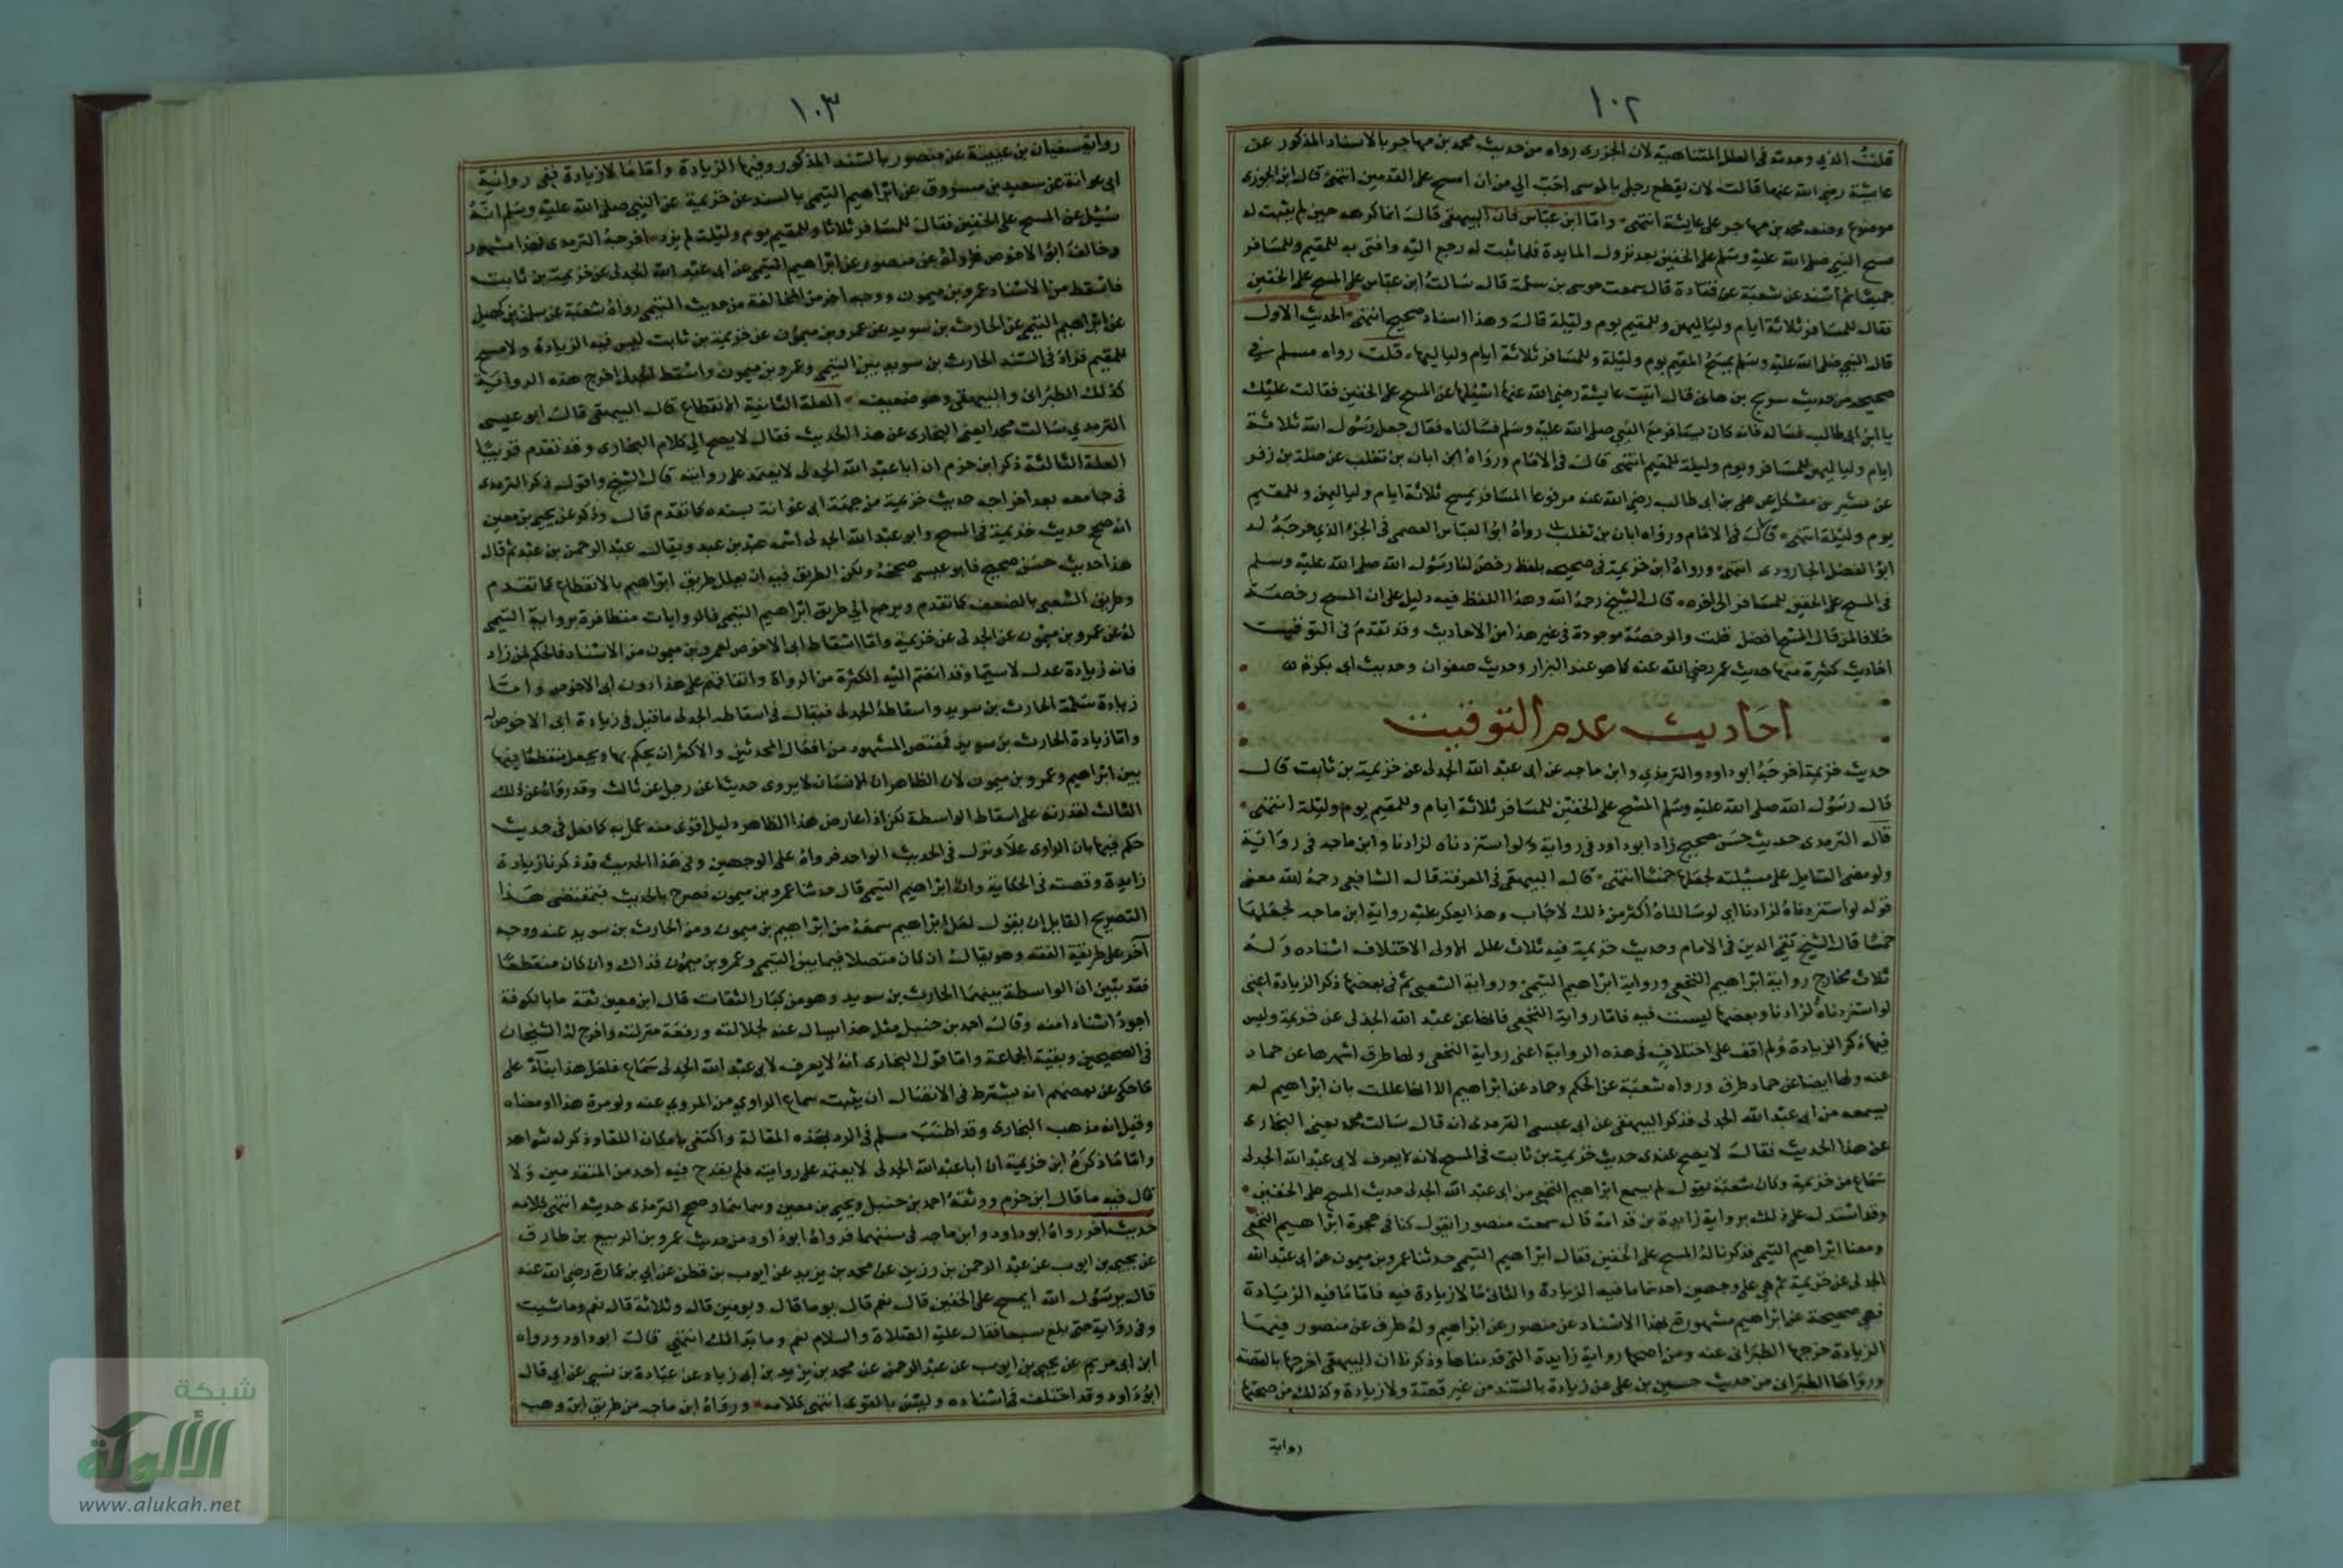 ١٠٢
قلت الذي وجدته في العلل المتناهية لان الجوزي رواه من حديث محمد بن مهاجر بالاسناد المذكور عن
عايشة رضي الله عنها قالت لان يقطع رجلي بالموسى احب الي من ان امسح على القدمين انتهى قال ابن الجوزي
موضوع وضعه محمد بن مهاجر على عايشة انتهى واما ابن عباس فان البيهقي قال انما كرهه حين لم يثبت له
مسح النبي صلى الله عليه وسلم على الخفين بعد نزول المايدة فلما ثبت له رجع اليه وافتى به للمقيم وللمسافر
جميعا ثم اسند عن شعبة عن قتادة قال سمعت موسى بن سلمة قال سالت ابن عباس على المسح على الخفين
فقال للمسافر ثلاثة ايام ولياليهن وللمقيم يوم وليلة قال وهذا اسناد صحيح انتهى الحديث الاول
قال النبي صلى الله عليه وسلم يمسح المقيم يوم وليلة وللمسافر ثلاثة ايام ولياليها قلت رواه مسلم في
صحيحه من حديث سريج بن هانئ قال اتيت عايشة رضي الله عنها اسئلها عن المسح على الخفين فقالت عليك
يا ابن ابي طالب فساله فانه كان يسافر مع النبي صلى الله عليه وسلم فسالناه فقال جعل رسول الله ثلاثة
ايام ولياليهن للمسافر ويوم وليلة للمقيم انتهى قال في الامام ورواه ابن ابان بن تغلب عن صلة بن زفر
عن بن عن علي بن ابي طالب رضي الله عنه مرفوعا المسافر يمسح ثلاثة ايام ولياليهن وللمقيم
يوم وليلة انتهى قال في الامام ورواه ابان بن تغلب رواه ابو العباس العصمي في الجزء الذي خرجه له
ابو الفضل الجارودي انتهى ورواه ابن خزيمة في صحيحه بلفظ رخص لنا رسول الله صلى الله عليه وسلم
في المسح على الخفين للمسافر الى اخره قال الشيخ رحمه الله وهذا اللفظ فيه دليل على ان المسح رخصة
خلافا لمن قال المسح افضل قلت والرخصة موجودة في غير هذا من الاحاديث وقد تقدم في التوقيت
احاديث كثيرة منها حديث عمر رضي الله عنه كما هو عند البزار وحديث صفوان وحديث ابي بكرة
احاديث عدم التوقيت
حديث خزيمة اخرجه ابو داود والترمذي وابن ماجه عن ابي عبد الله الجدلي عن خزيمة بن ثابت قال
قال رسول الله صلى الله عليه وسلم المسح على الخفين للمسافر ثلاثة ايام وللمقيم يوم وليلة انتهى
قال الترمذي حديث حسن صحيح زاد ابو داود في رواية ولو استزدناه لزادنا وابن ماجه في رواية
ولو مضى السايل على مسئلته لجعلها خمسا انتهى قال البيهقي في المعرفة قال الشافعي رحمه الله معنى
قوله لو استزدناه لزادنا اي لو سالناه اكثر من ذلك لاجاب وهذا يعكر عليه رواية ابن ماجه لجعلها
خمسا قال الشيخ تقي الدين في الامام وحديث خزيمة فيه ثلاث علل الاولى الاختلاف اسناده وله
ثلاث مخارج رواية ابراهيم النخعي ورواية ابراهيم التيمي ورواية الشعبي ثم في بعضها ذكر الزيادة اعني
لو استزدناه لزادنا وبعضها ليست فيه فاما رواية النخعي فانها عن عبد الله الجدلي عن خزيمة وليس
فيها ذكر الزيادة ولم اقف على اختلاف في هذه الرواية اعني رواية النخعي ولها طرق اشهرها عن حماد
عنه ولها ايضا عن حماد طرق ورواه شعبة عن الحكم وحماد عن ابراهيم الا انها عللت بان ابراهيم لم
يسمعه من ابي عبد الله الجدلي فذكر البيهقي عن ابي عيسى الترمذي انه قال سالت محمد يعني البخاري
عن هذا الحديث فقال لا يصح عندي حديث خزيمة بن ثابت في المسح لانه لا يعرف لابي عبد الله الجدلي
سماع من خزيمة وكان شعبة يقول لم يسمع ابراهيم النخعي من ابي عبد الله الجدلي حديث المسح على الخفين
وقد استدل على ذلك برواية زايدة بن قدامة قال سمعت منصورا يقول كنا في حجرة ابراهيم النخعي
ومعنا ابراهيم التيمي فذكرنا له المسح على الخفين فقال ابراهيم التيمي حدثنا عمرو بن ميمون عن ابي عبد الله
الجدلي عن خزيمة ثم هي على وجهين احدهما ما فيه الزيادة والثاني ما لا زيادة فيه فاما ما فيه الزيادة
فهي صحيحة عن ابراهيم مشهورة بهذا الاسناد عن منصور عن ابراهيم وله طرق عن منصور فيها
الزيادة خرجها الطبراني عنه ومن اصحها رواية زايدة التي قدمناها وذكرنا ان البيهقي اخرجها بالقصة
ورواها الطبراني من حديث حسين بن علي عن زيادة بالسند من غير قصة ولا زيادة وكذلك من صحتها
رواية
١٠٣
رواية سفيان بن عيينة عن منصور بالسند المذكور وفيها الزيادة واما ما لا زيادة ففي رواية
ابي عوانة عن سعيد بن مسروق عن ابراهيم التيمي بالسند عن خزيمة عن النبي صلى الله عليه وسلم انه
سئل عن المسح على الخفين فقال للمسافر ثلاثا وللمقيم يوم وليلة لم يزد اخرجه الترمذي فهذا مشهور
وخالفه ابو الاحوص فرواه عن منصور عن ابراهيم التيمي عن ابي عبد الله الجدلي عن خزيمة بن ثابت
فاسقط من الاسناد عمرو بن ميمون ووجه اخر من المخالفة من حديث التيمي رواه شعبة عن سلمة بن كهيل
عن ابراهيم التيمي عن الحارث بن سويد عن عمرو بن ميمون عن خزيمة بن ثابت ليس فيه الزيادة ولا مسح
للمقيم فزاد في السند الحارث بن سويد بين التيمي وعمرو بن ميمون واسقط الجدلي اخرج هذه الرواية
كذلك الطبراني والبيهقي وهو ضعيف العلة الثانية الانقطاع قال البيهقي قال ابو عيسى
الترمذي سالت محمدا يعني البخاري عن هذا الحديث فقال لا يصح الى كلام البخاري وقد تقدم قريبا
العلة الثالثة ذكر ابن حزم ان ابا عبد الله الجدلي لا يعتمد على روايته قال الشيخ واقول ذكر الترمذي
في جامعه بعد اخراجه حديث خزيمة من جهة ابي عوانة بسنده كما تقدم قال وذكر عن يحيى بن معين
انه صحح حديث خزيمة في المسح وابو عبد الله الجدلي اسمه عبد بن عبد ويقال عبد الرحمن بن عبد ثم قال
هذا حديث حسن صحيح فابو عيسى صححه ولكن الطريق فيه ان يعلل طريق ابراهيم بالانقطاع كما تقدم
وطريق الشعبي بالضعف كما تقدم ويرجع الى طريق ابراهيم التيمي فالروايات متظافرة برواية التيمي
له عن عمرو بن ميمون عن الجدلي عن خزيمة واما اسقاط ابي الاحوص لعمرو بن ميمون من الاسناد فالحكم لمن زاد
فانه زيادة عدل لا سيما وقد انضم اليه الكثرة من الرواة واتفاقهم على هذا دون ابي الاحوص واما
زيادة سلمة الحارث بن سويد واسقاطه الجدلي فيقال في اسقاطه الجدلي ما قيل في زيادة ابي الاحوص له
واما زيادة الحارث بن سويد فمقتضى المشهور من افعال المحدثين والاكثر ان يحكم بها ويجعل منقطعا فيها
بين ابراهيم وعمرو بن ميمون لان الظاهر ان الانسان لا يروي حديثا عن رجل عن ثالث وقد رواه عن ذلك
الثالث لقدرته على اسقاط الواسطة لكن اذا عارض هذا الظاهر دليل اقوى منه عمل به كما فعل في حديث
حكم فيها بان الراوي علا ونزل في الحديث الواحد فرواه على الوجهين وفي هذا الحديث قد ذكرنا زيادة
زايدة وقصته في الحكاية وان ابراهيم التيمي قال حدثنا عمرو بن ميمون فصرح بالحديث فبمقتضى هذا
التصريح القايل ان يقول لعل ابراهيم سمعه من ابراهيم بن ميمون ومن الحارث بن سويد عنه ووجه
آخر على طريقة الفقه وهو يقال ان كان متصلا فيما بين التيمي وعمرو بن ميمون فذاك وان كان منقطعا
فقد تبين ان الواسطة بينهما الحارث بن سويد وهو من كبار الثقات قال ابن معين ثقة ما بالكوفة
اجود اسنادا منه وقال احمد بن حنبل مثل هذا يسال عنه لجلالته ورفعة منزلته واخرج له الشيخان
في الصحيحين وبقية الجماعة واما قول البخاري انه لا يعرف لابي عبد الله الجدلي سماع فلعل هذا بناء على
ما حكي عن بعضهم انه يشترط في الاتصال ان يثبت سماع الراوي من المروي عنه ولو مرة هذا او معناه
وقيل انه مذهب البخاري وقد اطنب مسلم في الرد بهذه المقالة واكتفى بامكان اللقا وذكر له شواهد
واما ما ذكره ابن خزيمة ان ابا عبد الله الجدلي لا يعتمد على روايته فلم يقدح فيه احد من المتقدمين ولا
قال فيه ما قال ابن حزم ووثقه احمد بن حنبل ويحيى بن معين وصحح الترمذي حديثه انتهى كلامه
حديث اخر رواه ابو داود وابن ماجه في سننهما فرواه ابو داود من حديث عمرو بن الربيع بن طارق
عن يحيى بن ايوب عن عبد الرحمن بن رزين عن محمد بن يزيد عن ايوب بن قطن عن ابي بن عمارة رضي الله عنه
قال يرسول الله ايمسح على الخفين قال نعم قال يوما قال ويومين قال وثلاثة قال نعم وما شيت
وفي رواية حتى بلغ سبعا فقال عليه الصلاة والسلام نعم وما بدا لك انتهى قال ابو داود ورواه
ابن ابي مريم عن يحيى بن ايوب عن عبد الرحمن عن محمد بن يزيد بن ابي زياد عن عبادة بن نسي عن ابي قال
ابو داود وقد اختلف في اسناده وليس بالقوي انتهى كلامه ورواه ابن ماجه من طريق ابن وهب
شبكة
الألوكة
www.alukah.net